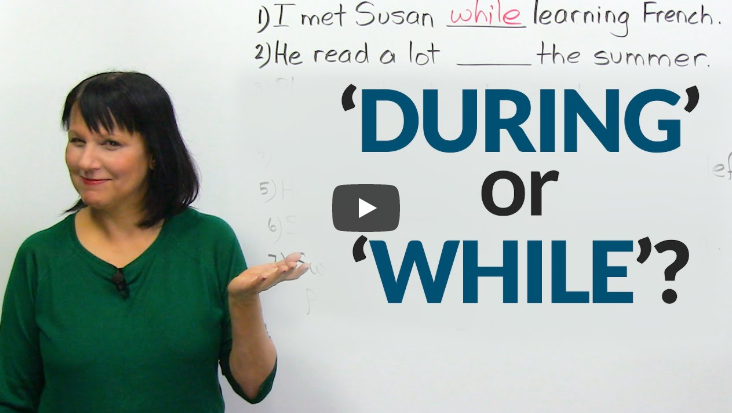 1) I met Susan while learning French.
2) He read a lot ______ the summer.
‘DURING’
or
‘WHILE’?
5) H
6) S
7)
ef